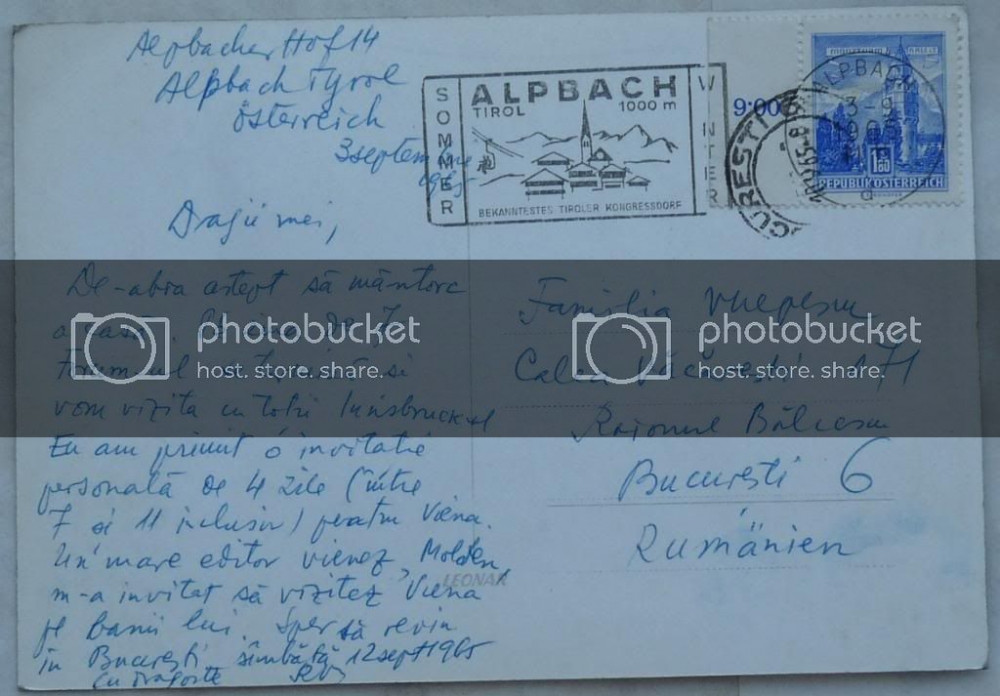 Alpbacher Hof 14
Alpbach Tyrol
Österreich
3 septembrie
1965
Dragii mei,
De-abia aştept să mă întorc
acasă. de 7
Forumul se termină şi
vom vizita cu toţii Innsbruck-ul
Eu am primit o invitaţie
personală de 4 zile (între
7 şi 11 inclusiv) pentru Viena.
Un mare editor vienez, Molden,
m-a invitat să vizitez Viena
pe banii lui. Sper să revin
în Bucureşti sîmbătă 12 sept 1965
cu dragoste
SOMMER
ALPBACH
TIROL 1000 m
WINTER
BEKANNTESTES TIROLER KONGRESSDORF
9:00
ALPBACH
3-9
1.80
REPUBLIK ÖSTERREICH
Familia
Calea Văcăreşti 171
Raionul Bălcescu
Bucureşti 6
Rumänien
LEONAR
photobucket
host. store. share.
photobucket
host. store. share.